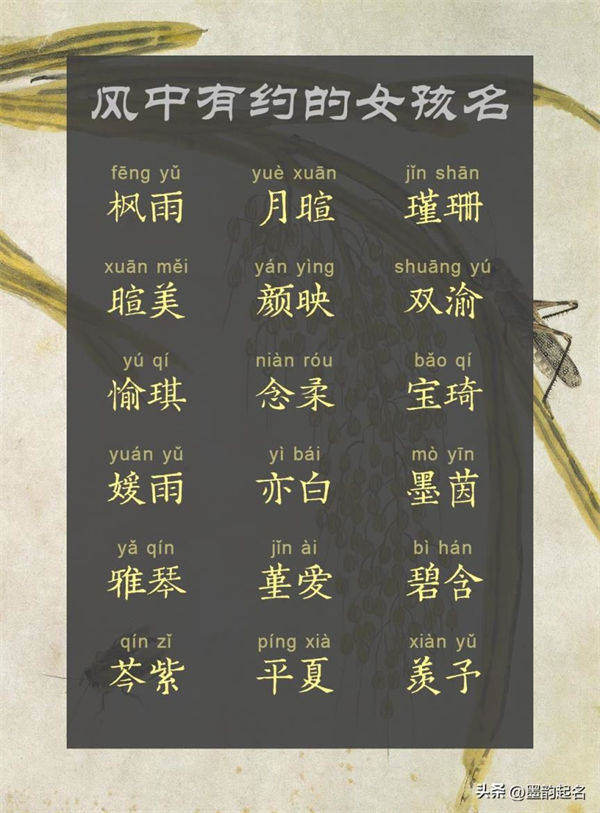 风中有约的女孩名
fēng yǔ yuè xuān jǐn shān
枫雨 月暄 瑾珊
xuān měi yán yìng shuāng yú
暄美 颜映 双渝
yú qí niàn róu bǎo qí
愉琪 念柔 宝琦
yuán yǔ yì bái mò yīn
媛雨 亦白 墨茵
yǎ qín jǐn ài bì hán
雅琴 堇爱 碧含
qín zǐ píng xià xiàn yǔ
芩紫 平夏 羡予
头条 @墨韵起名